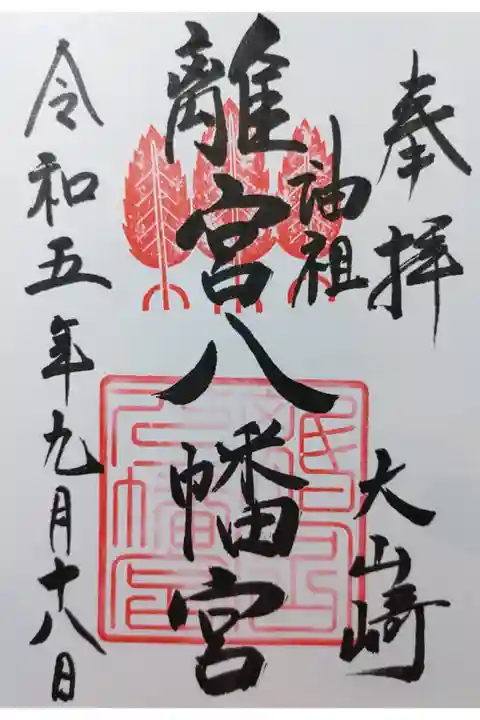 奉拝
大山崎
油祖
離宮八幡宮
令和五年九月十八日